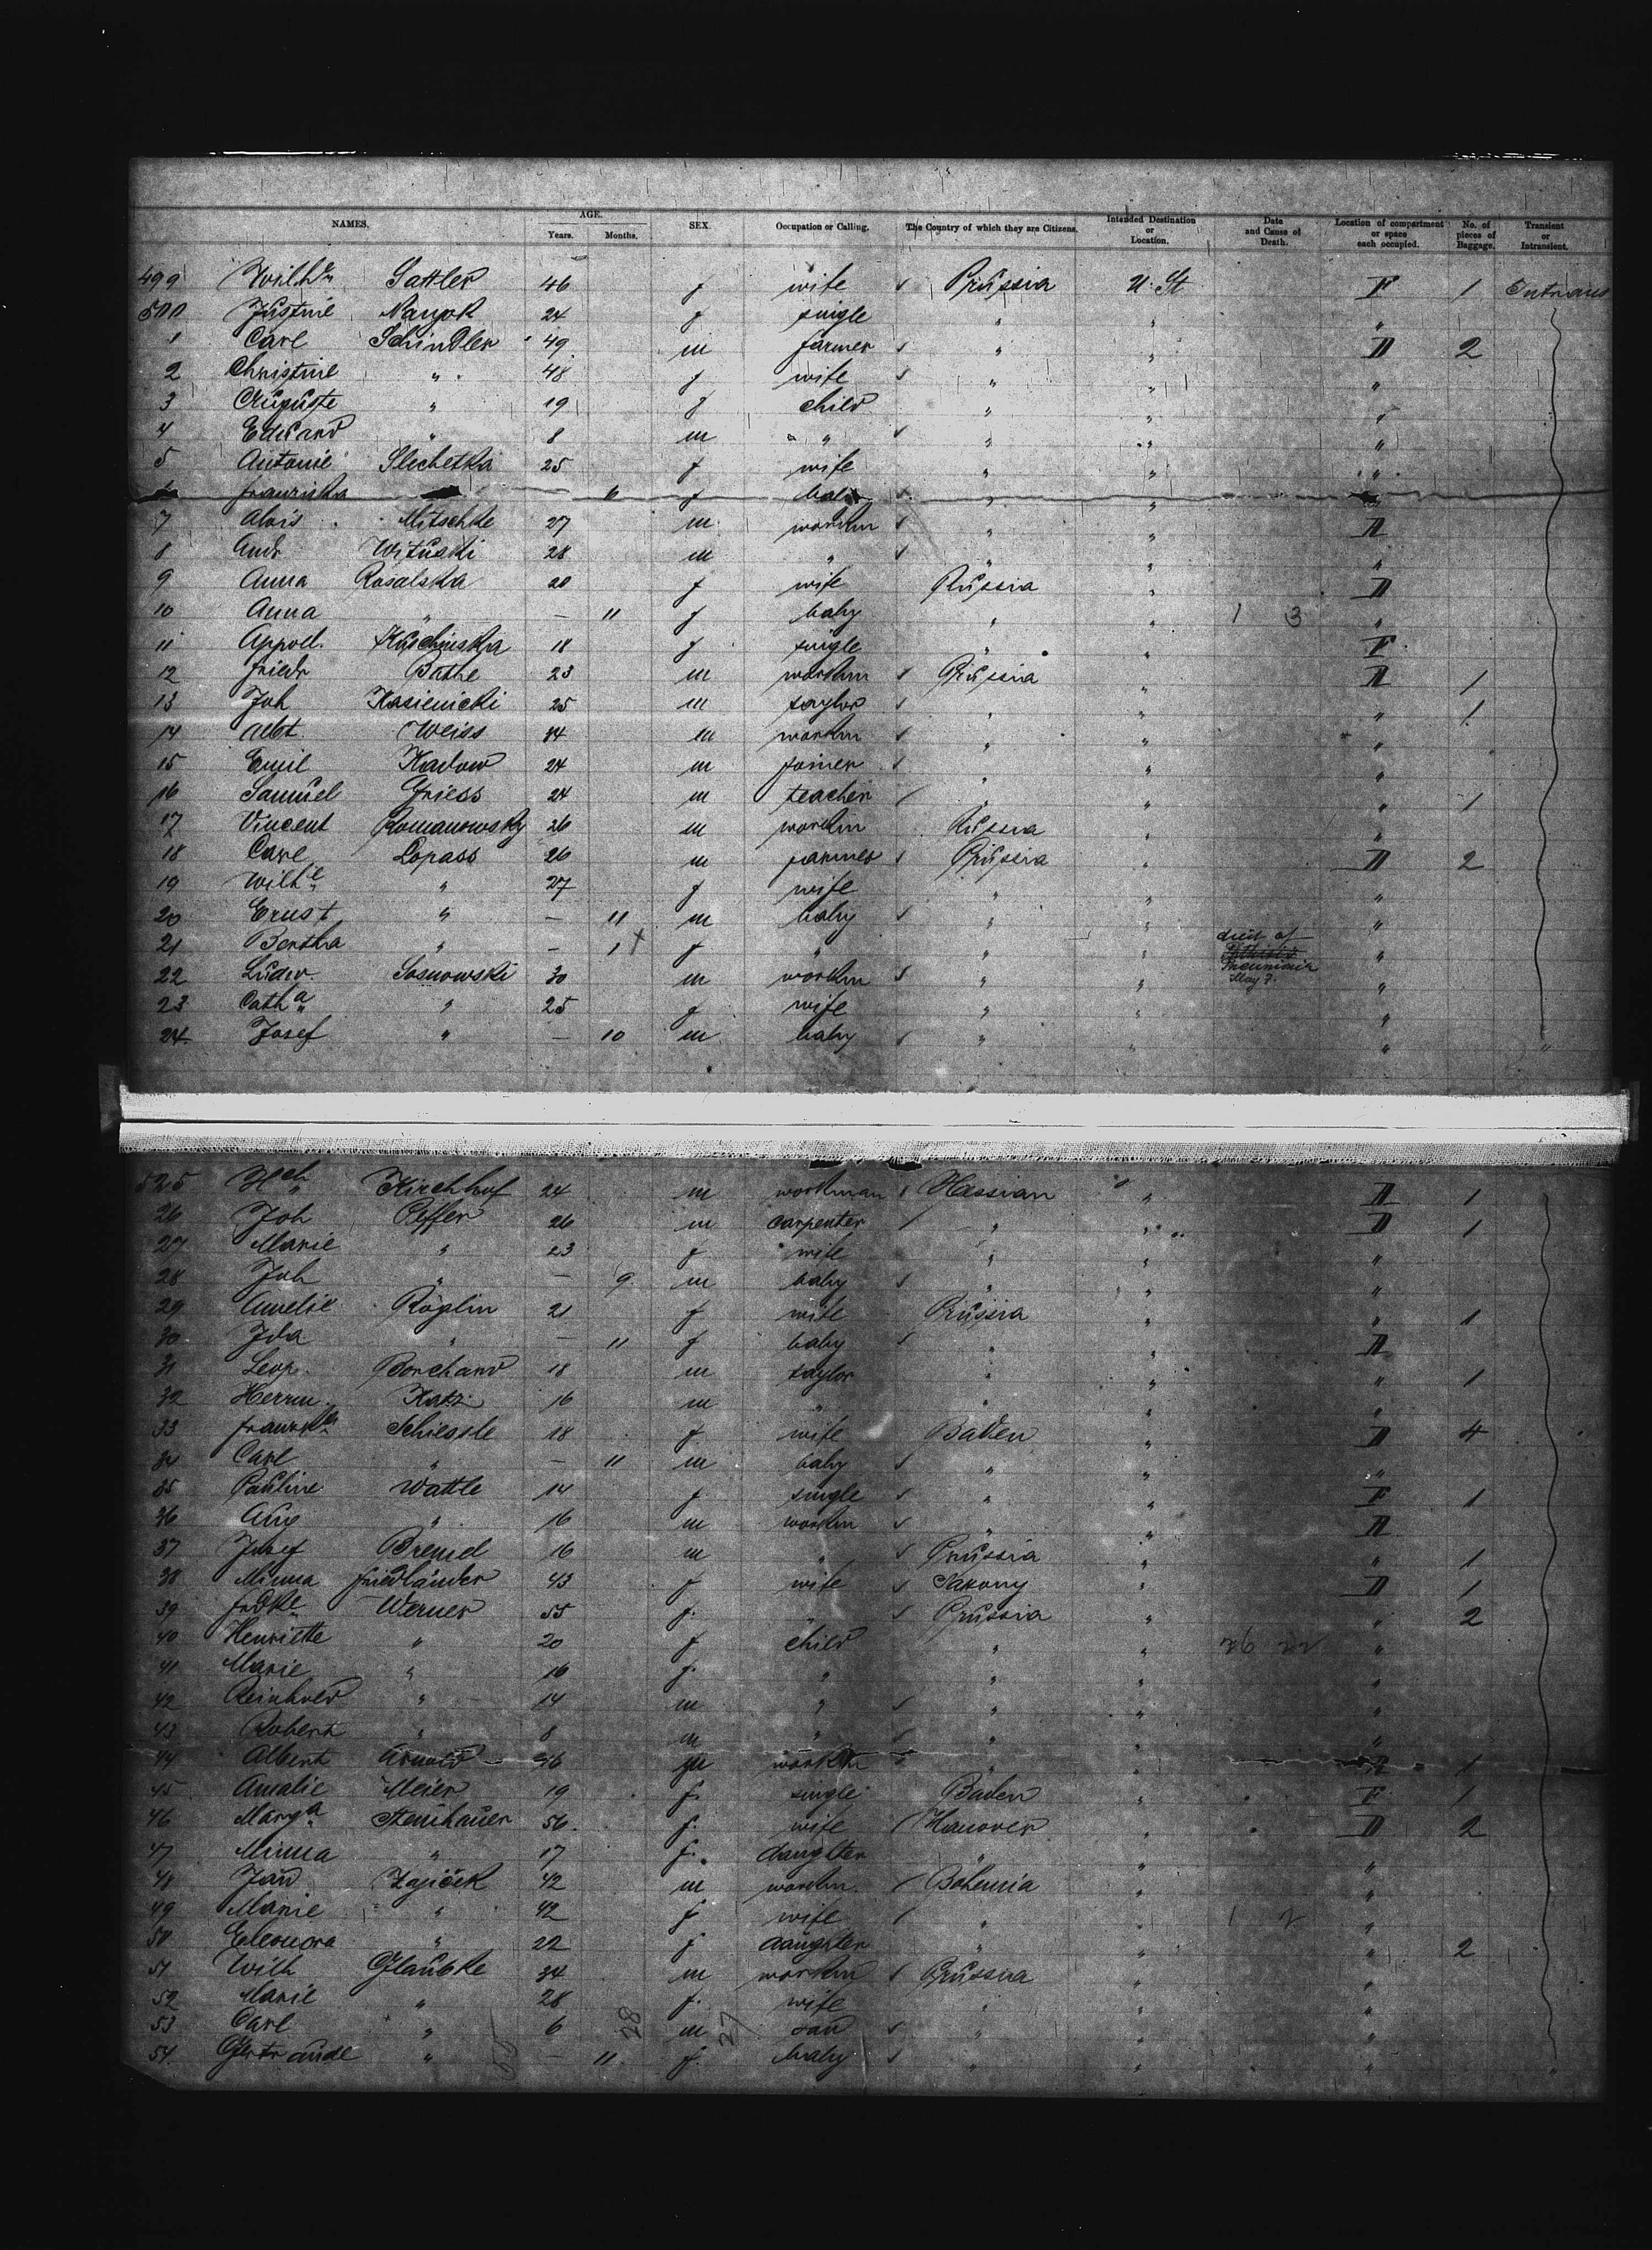 NAMES. AGE. Years. Months. SEX. Occupation or Calling. The Country of which they are Citizens. Intended Destination or Location. Date and Cause of Death. Location of compartment or space each occupied. No. of pieces of Baggage. Transient or Intransient.
499 Wilhe Sattler 46 f wife Prussia U. St. F 1
500 Justine 24 f single " " "
1 Carl Schindler 49 m farmer " " D 2
2 Christine " 48 f wife " " "
3 Auguste " 19 f child " " "
4 Eduard " 8 m " " " "
5 Antonie Slechetka 25 f wife " " "
6 Franziska 6 f baby " "
7 Alois Mitschke 27 m workm " " D
8 Andr Wituski 28 m " " " "
9 Anna Rosalska 28 f wife Russia " D
10 Anna " — 11 f baby " " 1 3 "
11 Appol. Kuschinska 18 f single " " F
12 Friedr Bathe 23 m workm Prussia " D 1
13 Joh Kasienicki 25 m taylor " " " 1
14 Albt Weiss 44 m workm " " "
15 Emil Kadow 24 m joiner " " "
16 Samuel Griess 24 m teacher " " " 1
17 Vincent Romanowsky 26 m workm Russia " "
18 Carl Lopass 26 m farmer Prussia " D 2
19 Wilhe " 27 f wife " " "
20 Ernst " — 11 m baby " " "
21 Bertha " — 1 f " " " died of Pneumonia May 7. "
22 Ludw. Sosnowski 30 m workm " " "
23 Catha " 25 f wife " " "
24. Josef " — 10 m baby " " " "
525 Hch Kirchhof 24 m workman Hessian " D 1
26 Joh Peffer 26 m carpenter " " D 1
27 Marie " 23 f wife " " "
28 Joh " — 9 m baby " " "
29 Amelie Röglin 21 f wife Prussia " " 1
30 Ida " — 11 f baby " " D
31 Leop. Borchard 18 m taylor " " " 1
32 Herrm. Katz 16 m " " " "
33 Schiessle 18 f wife Baden " D 4
34 Carl " — 11 m baby " " "
35 Pauline Wattle 14 f single " " F 1
36 Aug " 16 m workm " " D
37 Josef 16 m " Prussia " " 1
38 Minna Friedländer 43 f wife Saxony " D 1
39 Werner 55 f. " Prussia " " 2
40 Henriette " 20 f child " " "
41 Marie " 16 f. " " " "
42 Reinhold " 14 m " " " "
43 Robert " 8 m " " " "
44 Albert Arnold m workm " 1
45 Amalie Meier 19 f. single Baden " F 1
46 Marga Steinhauer 56. f. wife Hanover " D 2
47 Minna " 17 f. daughter " " "
48 Jan Zajicek 42 m workm. Bohemia " "
49 Marie " 42 f wife " " "
50 Eleonora " 22 f daughter " " " 2
51 Wilh Glaubke 34 m workm Prussia " "
52 Marie " 28 f. wife " " "
53 Carl " 6 m " " "
54. Gertraude " — 11 f. baby " " " "
28 27